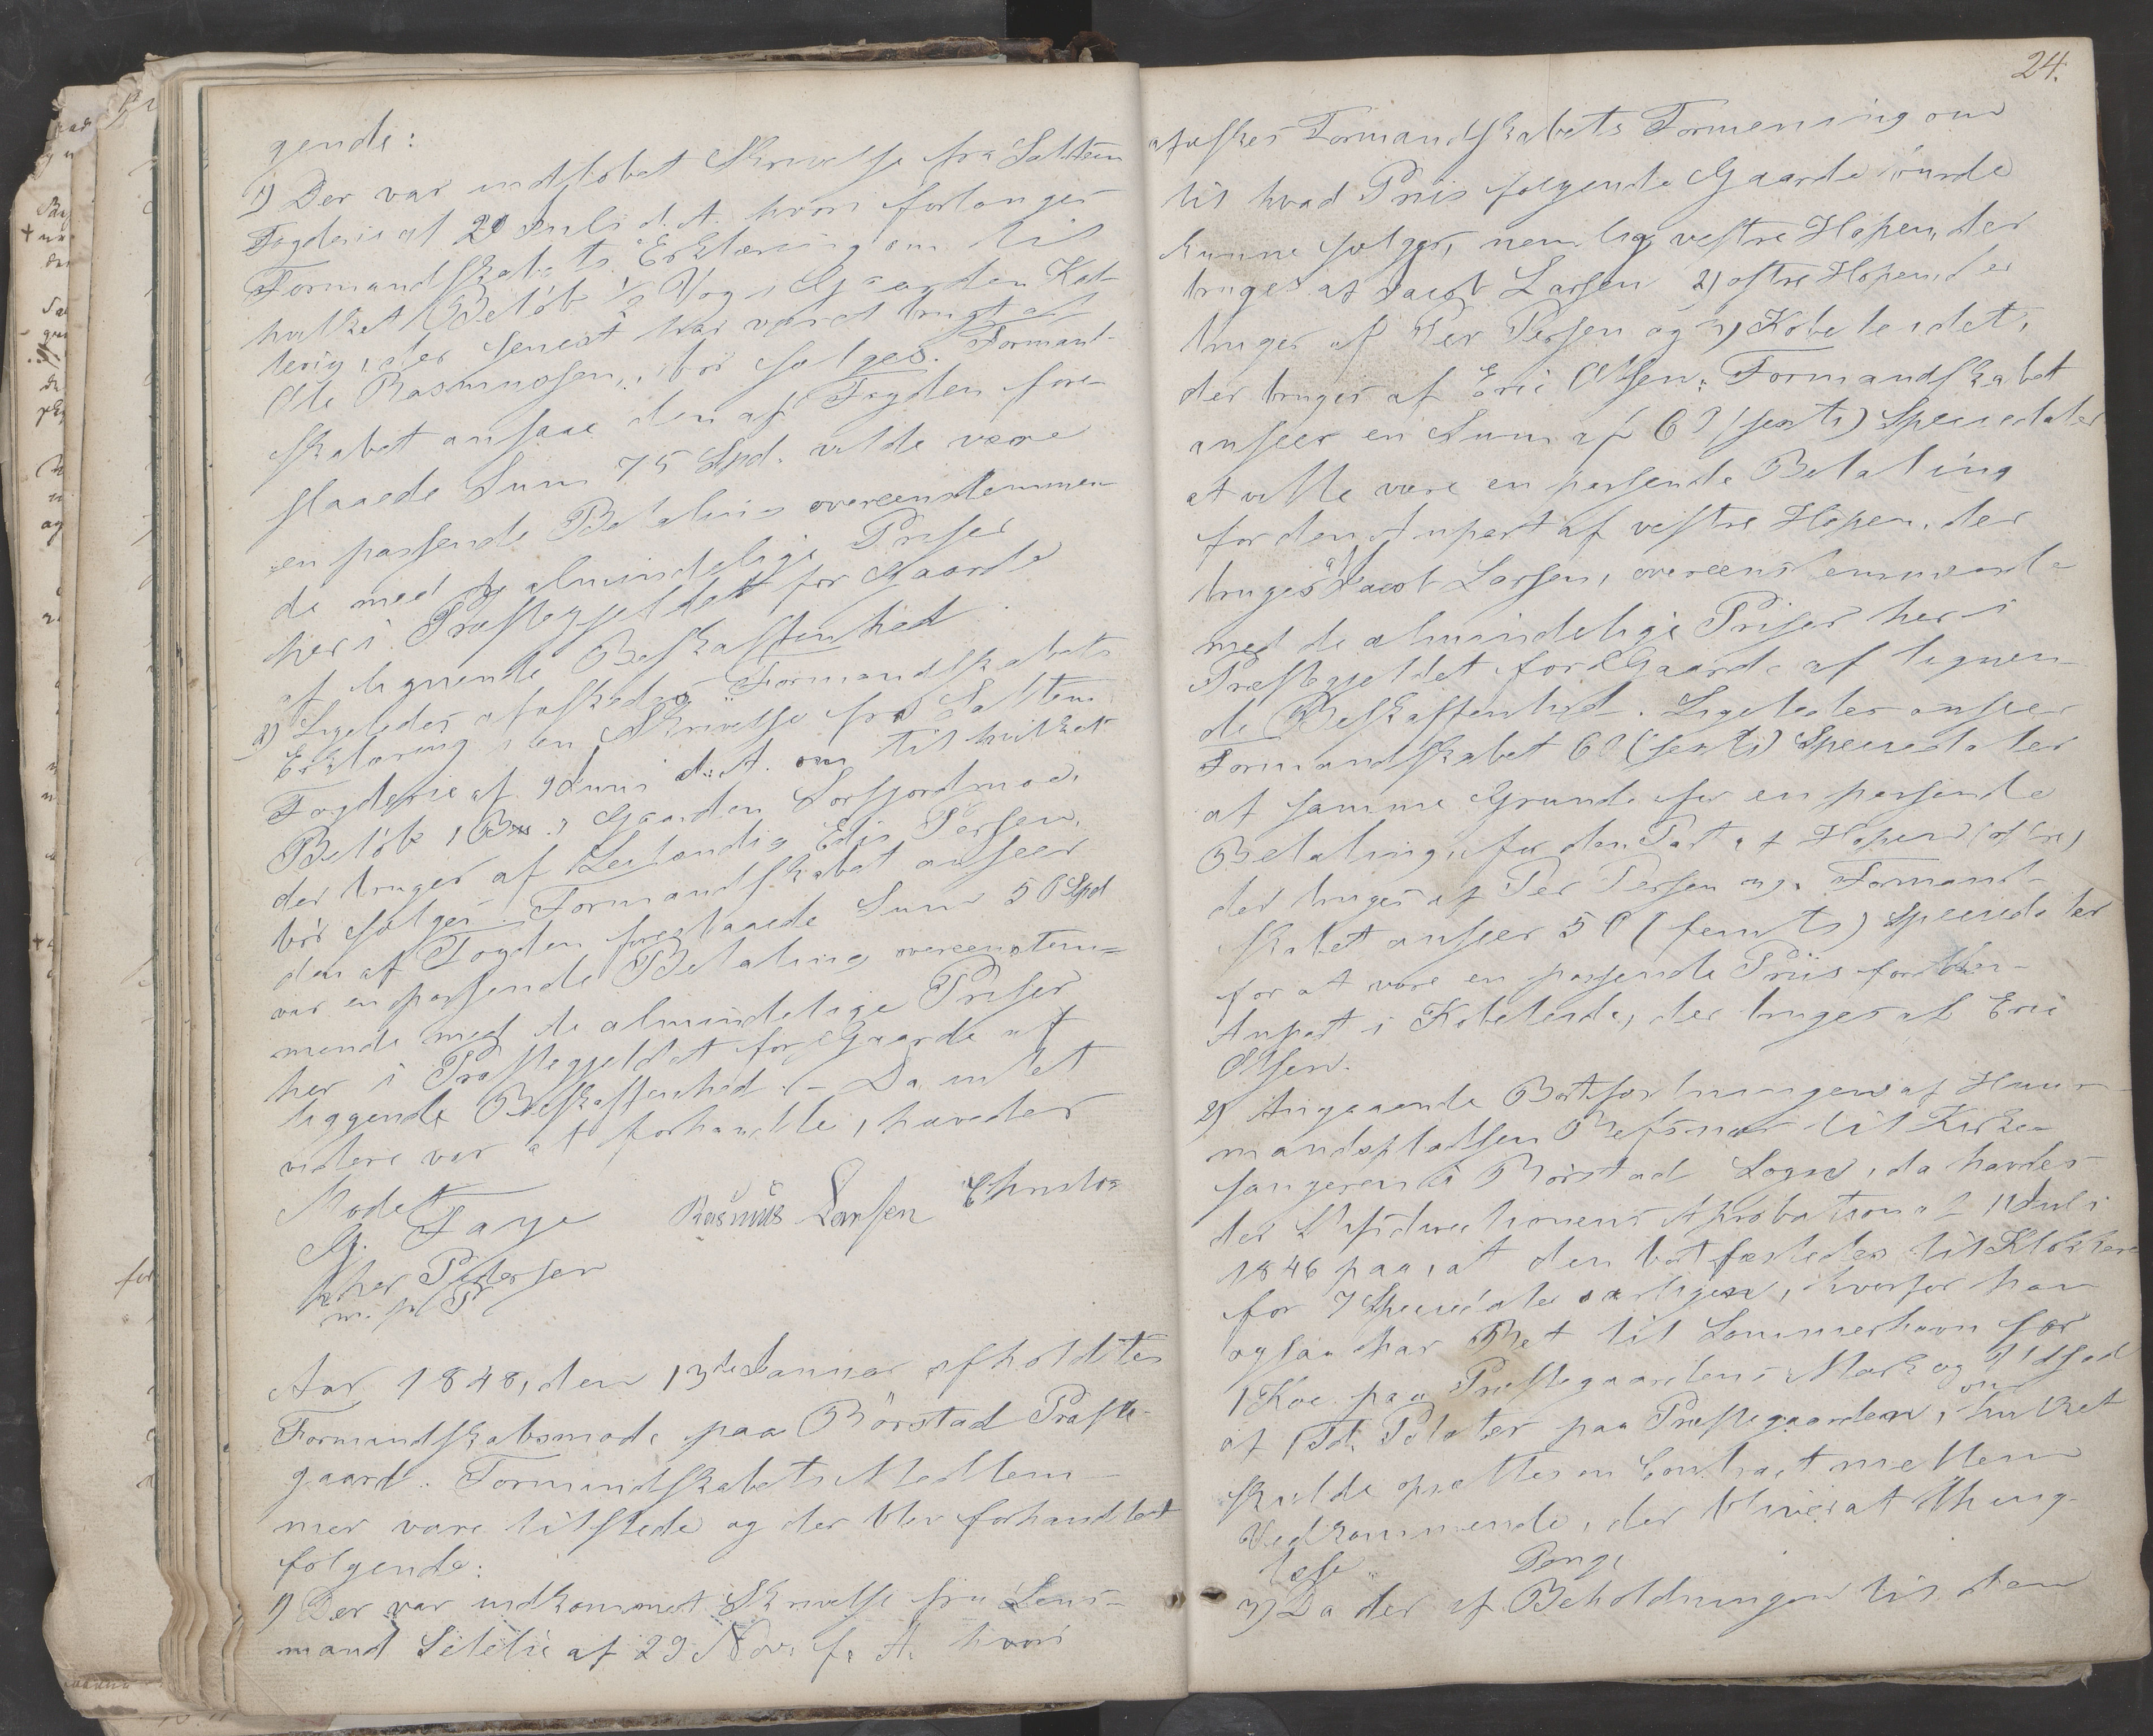 gende:
1) Der var indløbet Skrivelse fra Salten
Fogderie af 20 Juli d. A. hvori forlanges
Formandskabets Erklæring om til
hvilket Beløb 1/2 Vog i Gaarden Kal-
terig, der senest har været brugt af
Ole Rasmussen, bør sælges. Formand-
skabet ansaae den af Fogden fore-
slaaede Sum 75 Spd. vilde være
en passende Betaling overeenstemmen
de med de almindelige Priser
her i Præstegjeldet for Gaarde
af lignende Beskaffenhed.
2) Ligeledes afæskedes Formandskabets
Erklæring i en Skrivelse fra Salten
Fogderie af 9 Juni d. A. om til hvilket
Beløb 1 B. i Gaarden Lorfjordmoe,
der bruges af Leilænding Edis Persen,
bør sælges. Formandskabet anseer
den af Fogden foreslaaede Sum 50 Spd
var en passende Betaling overeenstem-
mende med de almindelige Priser
her i Præstegjeldet for Gaarde af
liggende Beskaffenhed. - Da intet
videre var at forhandle, hævedes
Mødet
G. Faye Rasmus Larsen Christo
Per Pedersen
m. p. P.
Aar 1848, den 13de Januar afholdtes
Formandskabsmøde paa Börstad Præste-
gaard. Formandskabets Medlem-
mer vare tilstede og der blev forhandlet
følgende:
1) Der var indkommet Skrivelse fra Lens-
mand af 29 Nov. f. A. hvori
24.
afæskes Formandskabets Formening om
til hvad Priis følgende Gaarde burde
kunne sælges, nemlig vestre Hopen, der
bruges af Jacob Larsen 2) østre Hopen der
bruges af Per Persen og 3) Kobeleidet,
der bruges af Eric Olsen: Formandskabet
anseer en Sum af 60 (sexti) Speciedaler
at ville være en passende Betaling
for den Anpart af vestre Hopen, der
bruges af Jacob Larsen, overeenstemmende
med de almindelige Priser her i
Præstegjeldet for Gaarde af lignen-
de Beskaffenhed. Ligeledes anseer
Formandskabet 60 (sexti) Speciedaler
af samme Grunde for en passende
Betaling for den Part af Hopen (østre)
der bruges af Per Persen og. Formand-
skabet anseer 50 (femti) Speciedaler
for at være en passende Priis for den
Anpart i Kobeleide, der bruges af Eric
Olsen.
2) Angaaende Bortforhuringen af Huus-
mandspladsen til Kirke-
sangeren i Börstad Sogn, da havdes
der Stiftsdirectionens Aprobation af 11 Juli
1846 paa, at den bortfæstedes til Klokkeren
for 7 Speciedaler aarligen, hvorfor han
ogsaa har Ret til Sommerhavn for
1 Koe paa Præstegaardens Mark og Udsæd
af 1 Td. Poteter paa Præstegaarden, om hvilket
skulde oprettes en Contract mellem
Vedkommende, der bliver at thing-
læse.
3) Da der af Penge Beholdningen til den